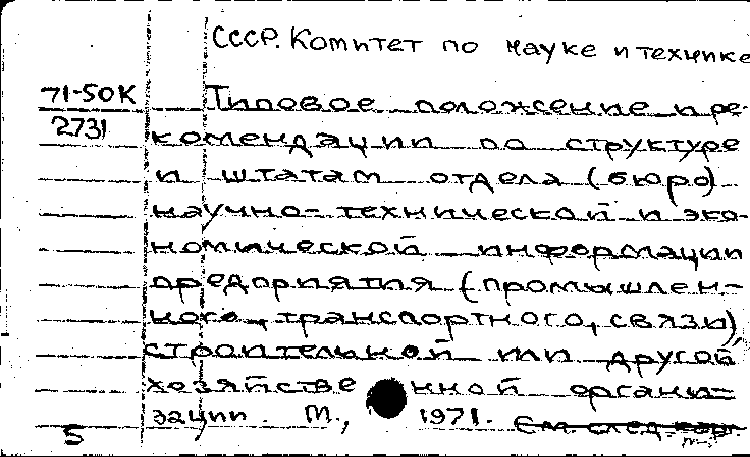 СССР. Комитет по науке и технике
71-50К
2731
Типовое положение и ре-
комендации по структуре
и штатам отдела (бюро)
научно-технической и эко-
номической информации
предприятия (промышлен-
ного, транспортного, связи),
строительной или другой
хозяйственной органи-
зации. М., 1971. См. след. карт.
5